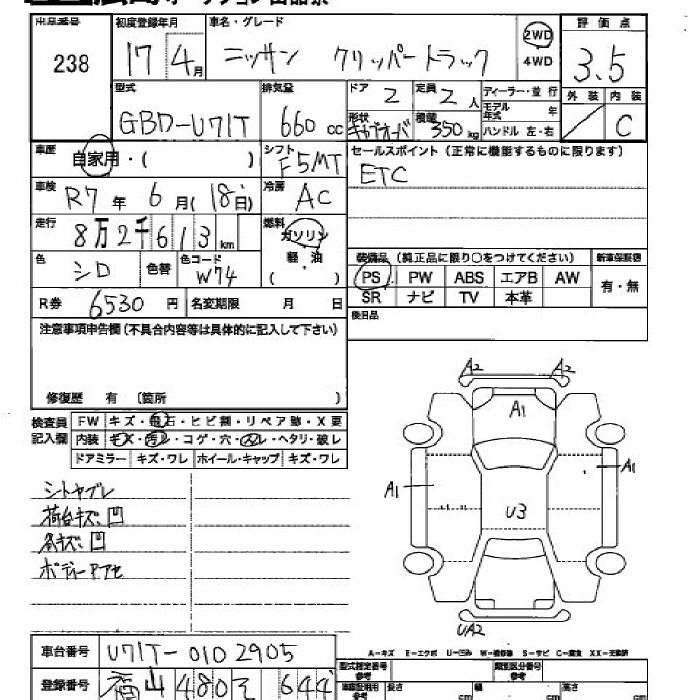 出品番号 初度登録年月 車名・グレード 評価点
238 17年4月 ニッサン クリッパートラック 2WD 4WD 3.5
型式 排気量 ドア 定員 ディーラー・並行 外装 内装
GBD-U71T 660cc 2 2人 モデル年式 年 C
形状 キャブオーバ 積載 350kg ハンドル 左・右
車歴 自家用・( ) シフト F5MT セールスポイント (正常に機能するものに限ります)
ETC
車検 R7年6月(18日) 冷房 AC
走行 8万2千613km 燃料 ガソリン
軽・油
( )
色 シロ 色替 色コード W74
装備品 (純正品に限り○をつけてください) 新車保証書
PS PW ABS エアB AW 有・無
SR ナビ TV 本革
R券 6530円 名変期限 月 日 後日品
注意事項申告欄 (不具合内容等は具体的に記入して下さい)
修復歴 有 〔箇所 〕
検査員記入欄 FW キズ・飛石・ヒビ割・リペア跡・X要
内装 キズ・汚れ・コゲ・穴・スレ・ヘタリ・破レ
ドアミラー キズ・ワレ ホイール・キャップ キズ・ワレ
シートヤブレ
荷台キズ、凹
各キズ、凹
ボディーアアセ
A2 A2
A1
A1 A1
U3
UA2
A-キズ E-エクボ U-凹み W-補修跡 S-サビ C-腐食 XX-交換済
車台番号 U71T-0102905
型式指定番号 参考 類別区分番号 参考
登録番号 福山 480 そ 644
車庫証明用 参考 長さ cm 幅 cm 高さ cm